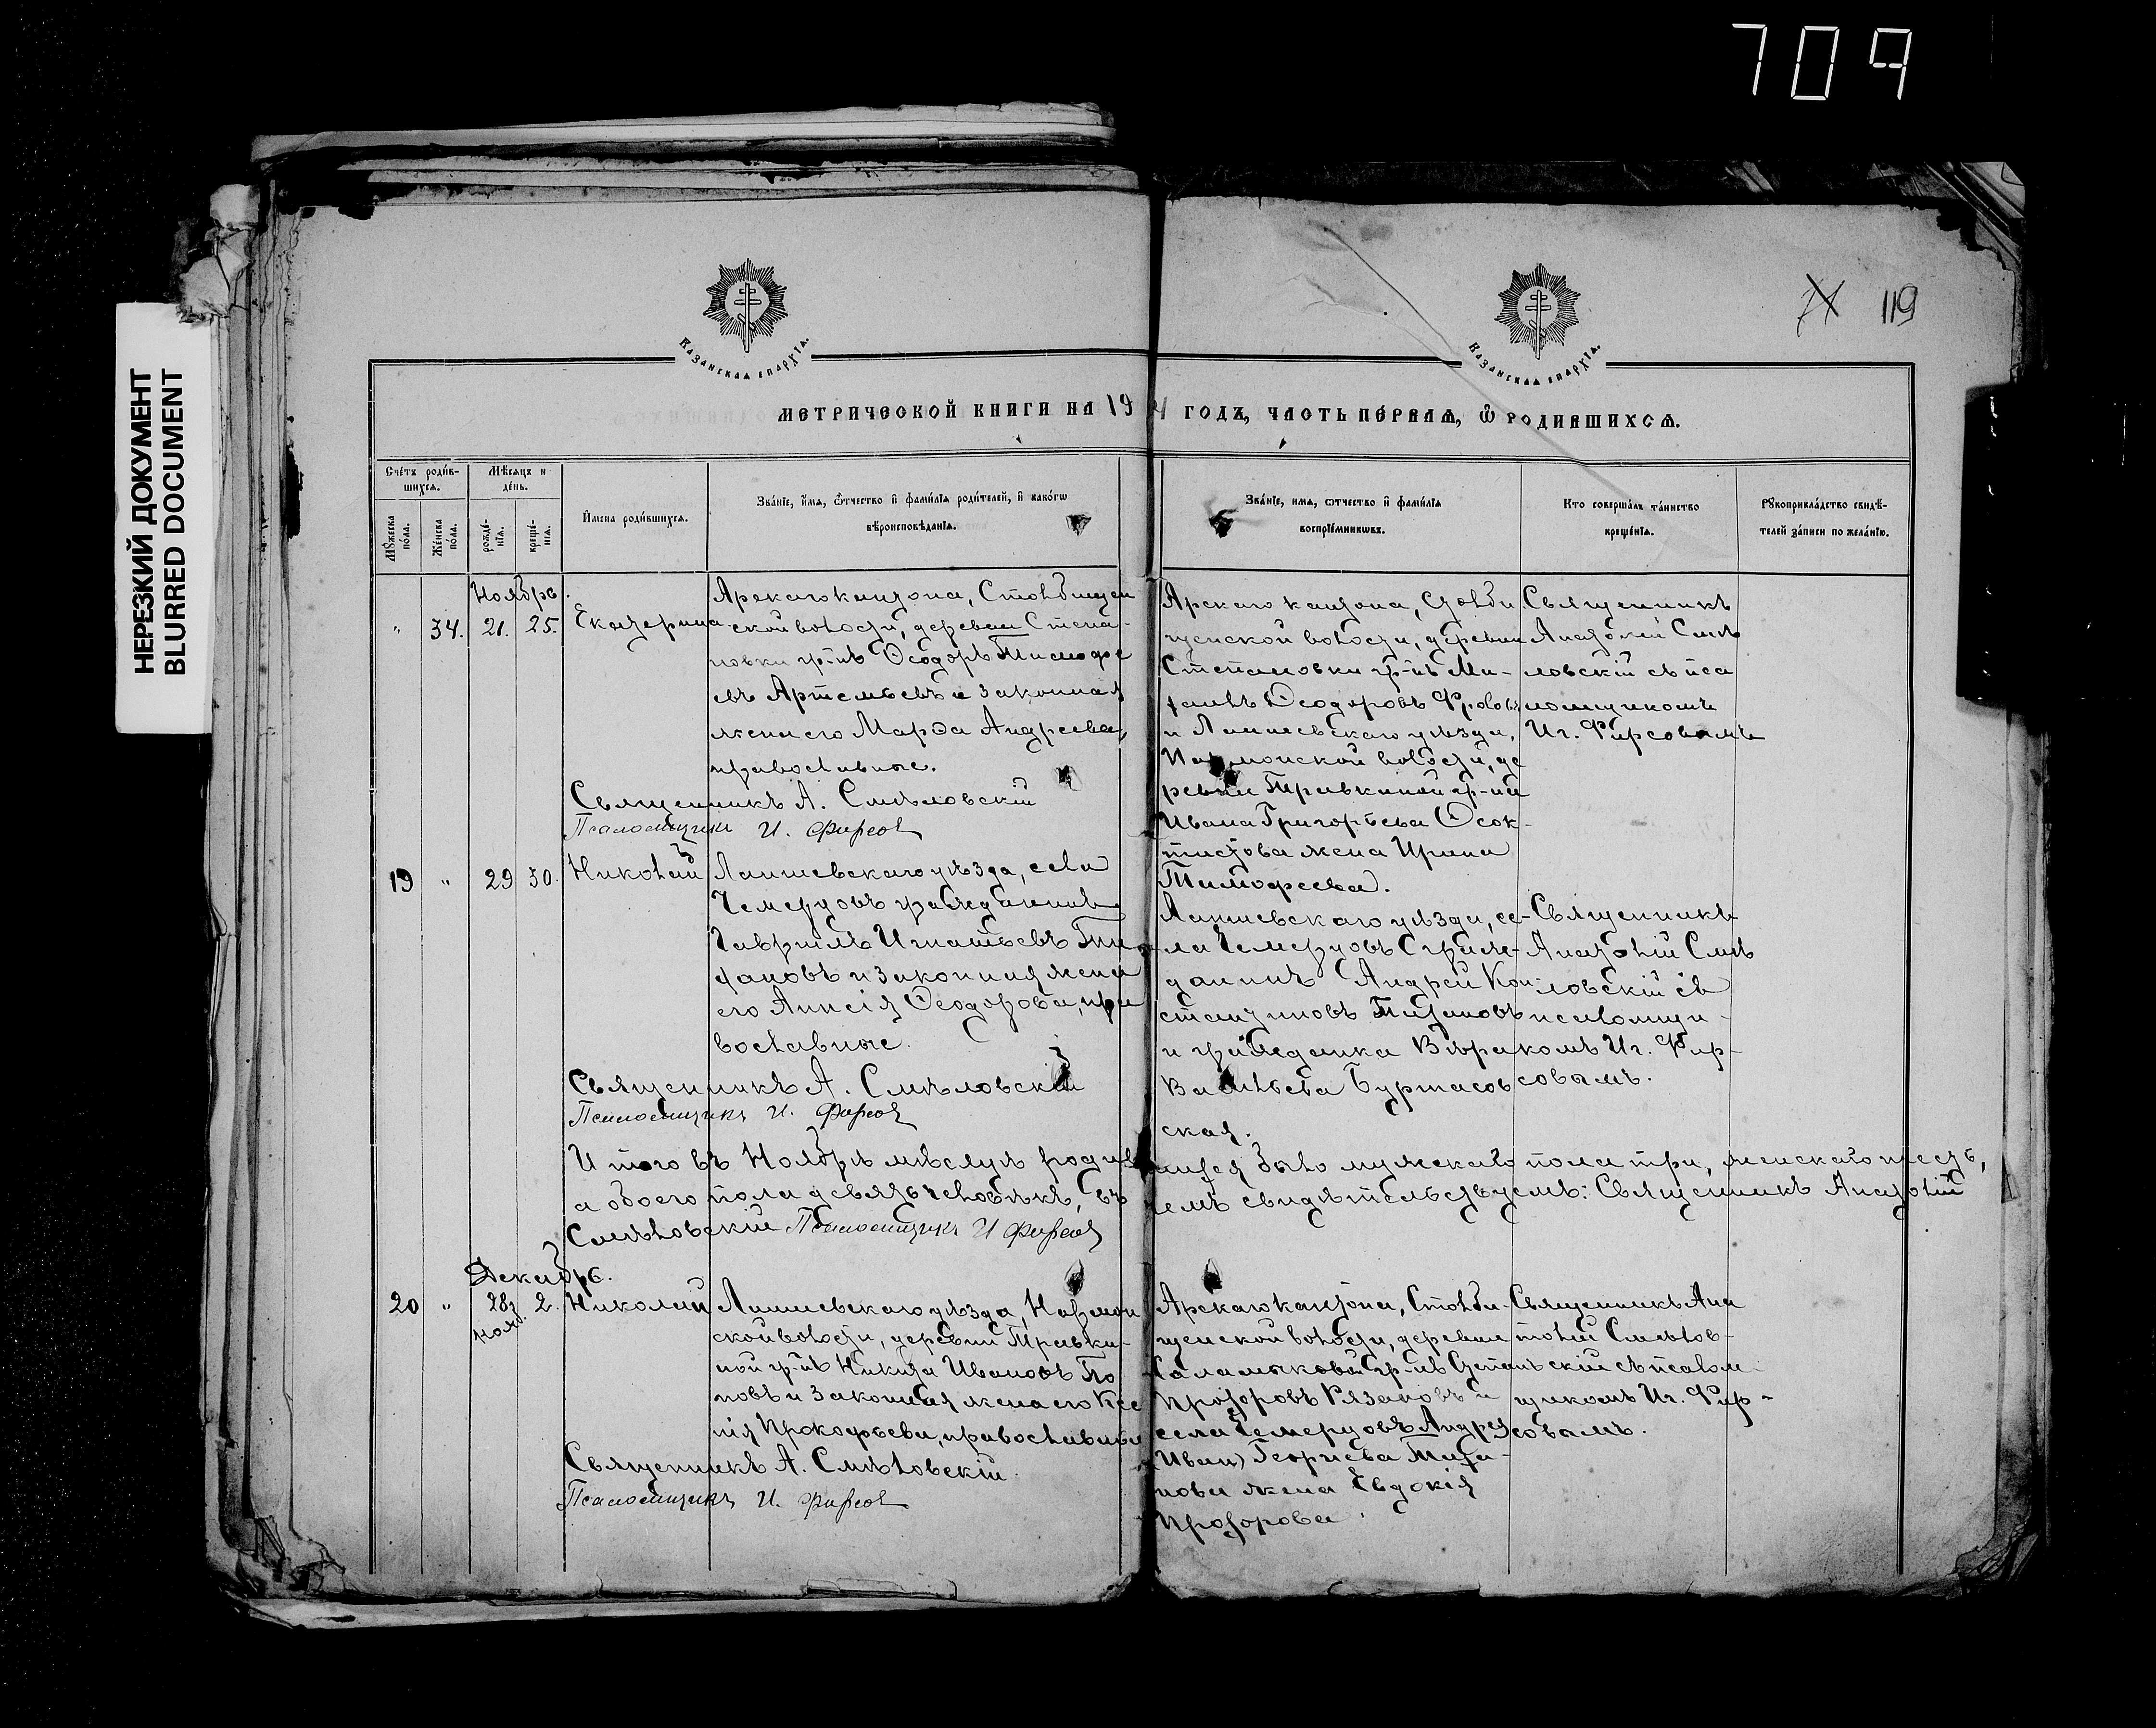 709
НЕРЕЗКИЙ ДОКУМЕНТ
BLURRED DOCUMENT
119
Казанская епархія.
Казанская епархія.
Метрической книги на 19 4 годъ, часть пе́рвая, ѿ родившихсѧ.
Сче́тъ роди́вшихся.
Мѣ́сяцъ и де́нь.
Мꙋ́жеска по́ла.
Же́нска по́ла.
рожде́нія.
креще́нія.
И́мена роди́вшихся.
Зва́ніе, и́мя, ѻ́тчество и҆ фами́лія роди́телей, и҆ како́гѡ
вѣроисповѣ́данія.
Зва́ніе, имя, ѻтчество и҆ фами́лія
воспріе́мникѡвъ.
Кто соверша́лъ та́инство
креще́нія.
Рꙋкоприкла́дство свидѣ́-
телей за́писи по жела́нію.
Ноябрь.
" 34. 21. 25. Екатерина
Арскаго кантона, Столбищен
ской волости, деревни Степа-
новки гр-нъ Ѳеодоръ Тимофе
евъ Артемьевъ и законная
жена его Марѳа Андреева,
православные.
Священникъ А. Смѣловскій
Псаломщикъ И. Фирсов
Арскаго кантона, Столби
щенской волости, деревни
Степановки гр-нъ Ми-
хаилъ Ѳеодоровъ Фроловъ
и Лаишевскаго уѣзда,
Нармонской волости, де
ревни Травкиной гр-на
Ивана Григорьева Ѳеок-
тистова жена Ирина
Тимофеева.
Священникъ
Анатолій Смѣ
ловскій съ пса
ломщикомъ
Иг. Фирсовымъ
19 " 29 30. Николай
Лаишевскаго уѣзда, села
Чемерцовъ гражданинъ
Гавриилъ Игнатьевъ Ти
фановъ и законная жена
его Анисія Ѳеодорова, пра
вославные.
Священникъ А. Смѣловскій
Псаломщикъ И. Фирсов
Лаишевскаго уѣзда, се-
ла Чемерцовъ гражда-
данинъ Андрей Кон
стантиновъ Тифановъ
и гражданка Вѣра
Васильева Буртасов
ская.
Священникъ
Анатолій Смѣ
ловскій съ
псаломщи-
комъ Иг. Фир-
совымъ.
Итого въ Ноябрѣ мѣсяцѣ родив шихся было мужскаго пола три, женскаго шесть,
а обоего пола девять человѣкъ, въ чемъ свидѣтельствуемъ: Священникъ Анатолій
Смѣловскій Псаломщикъ И Фирсов
Декабрь.
20 " 28 ноя. 2. Николай
Лаишевскаго уѣзда, Нармон
ской волости, деревни Травки-
ной гр-нъ Никита Ивановъ По
повъ и законная жена его Ксе
нія Прокофьева, православные
Священникъ А. Смѣловскій.
Псаломщикъ И. Фирсов
Арскаго кантона, Столби-
щенской волости, деревни
Саламыковой гр-нъ Степанъ
Прохоровъ Рязановъ и
села Чемерцовъ Андрея
(Иван) Георгіева Тифа-
нова жена Евдокія
Прохорова.
Священникъ Ана
толій Смѣлов-
скій съ псалом
щикомъ Иг. Фир-
совымъ.